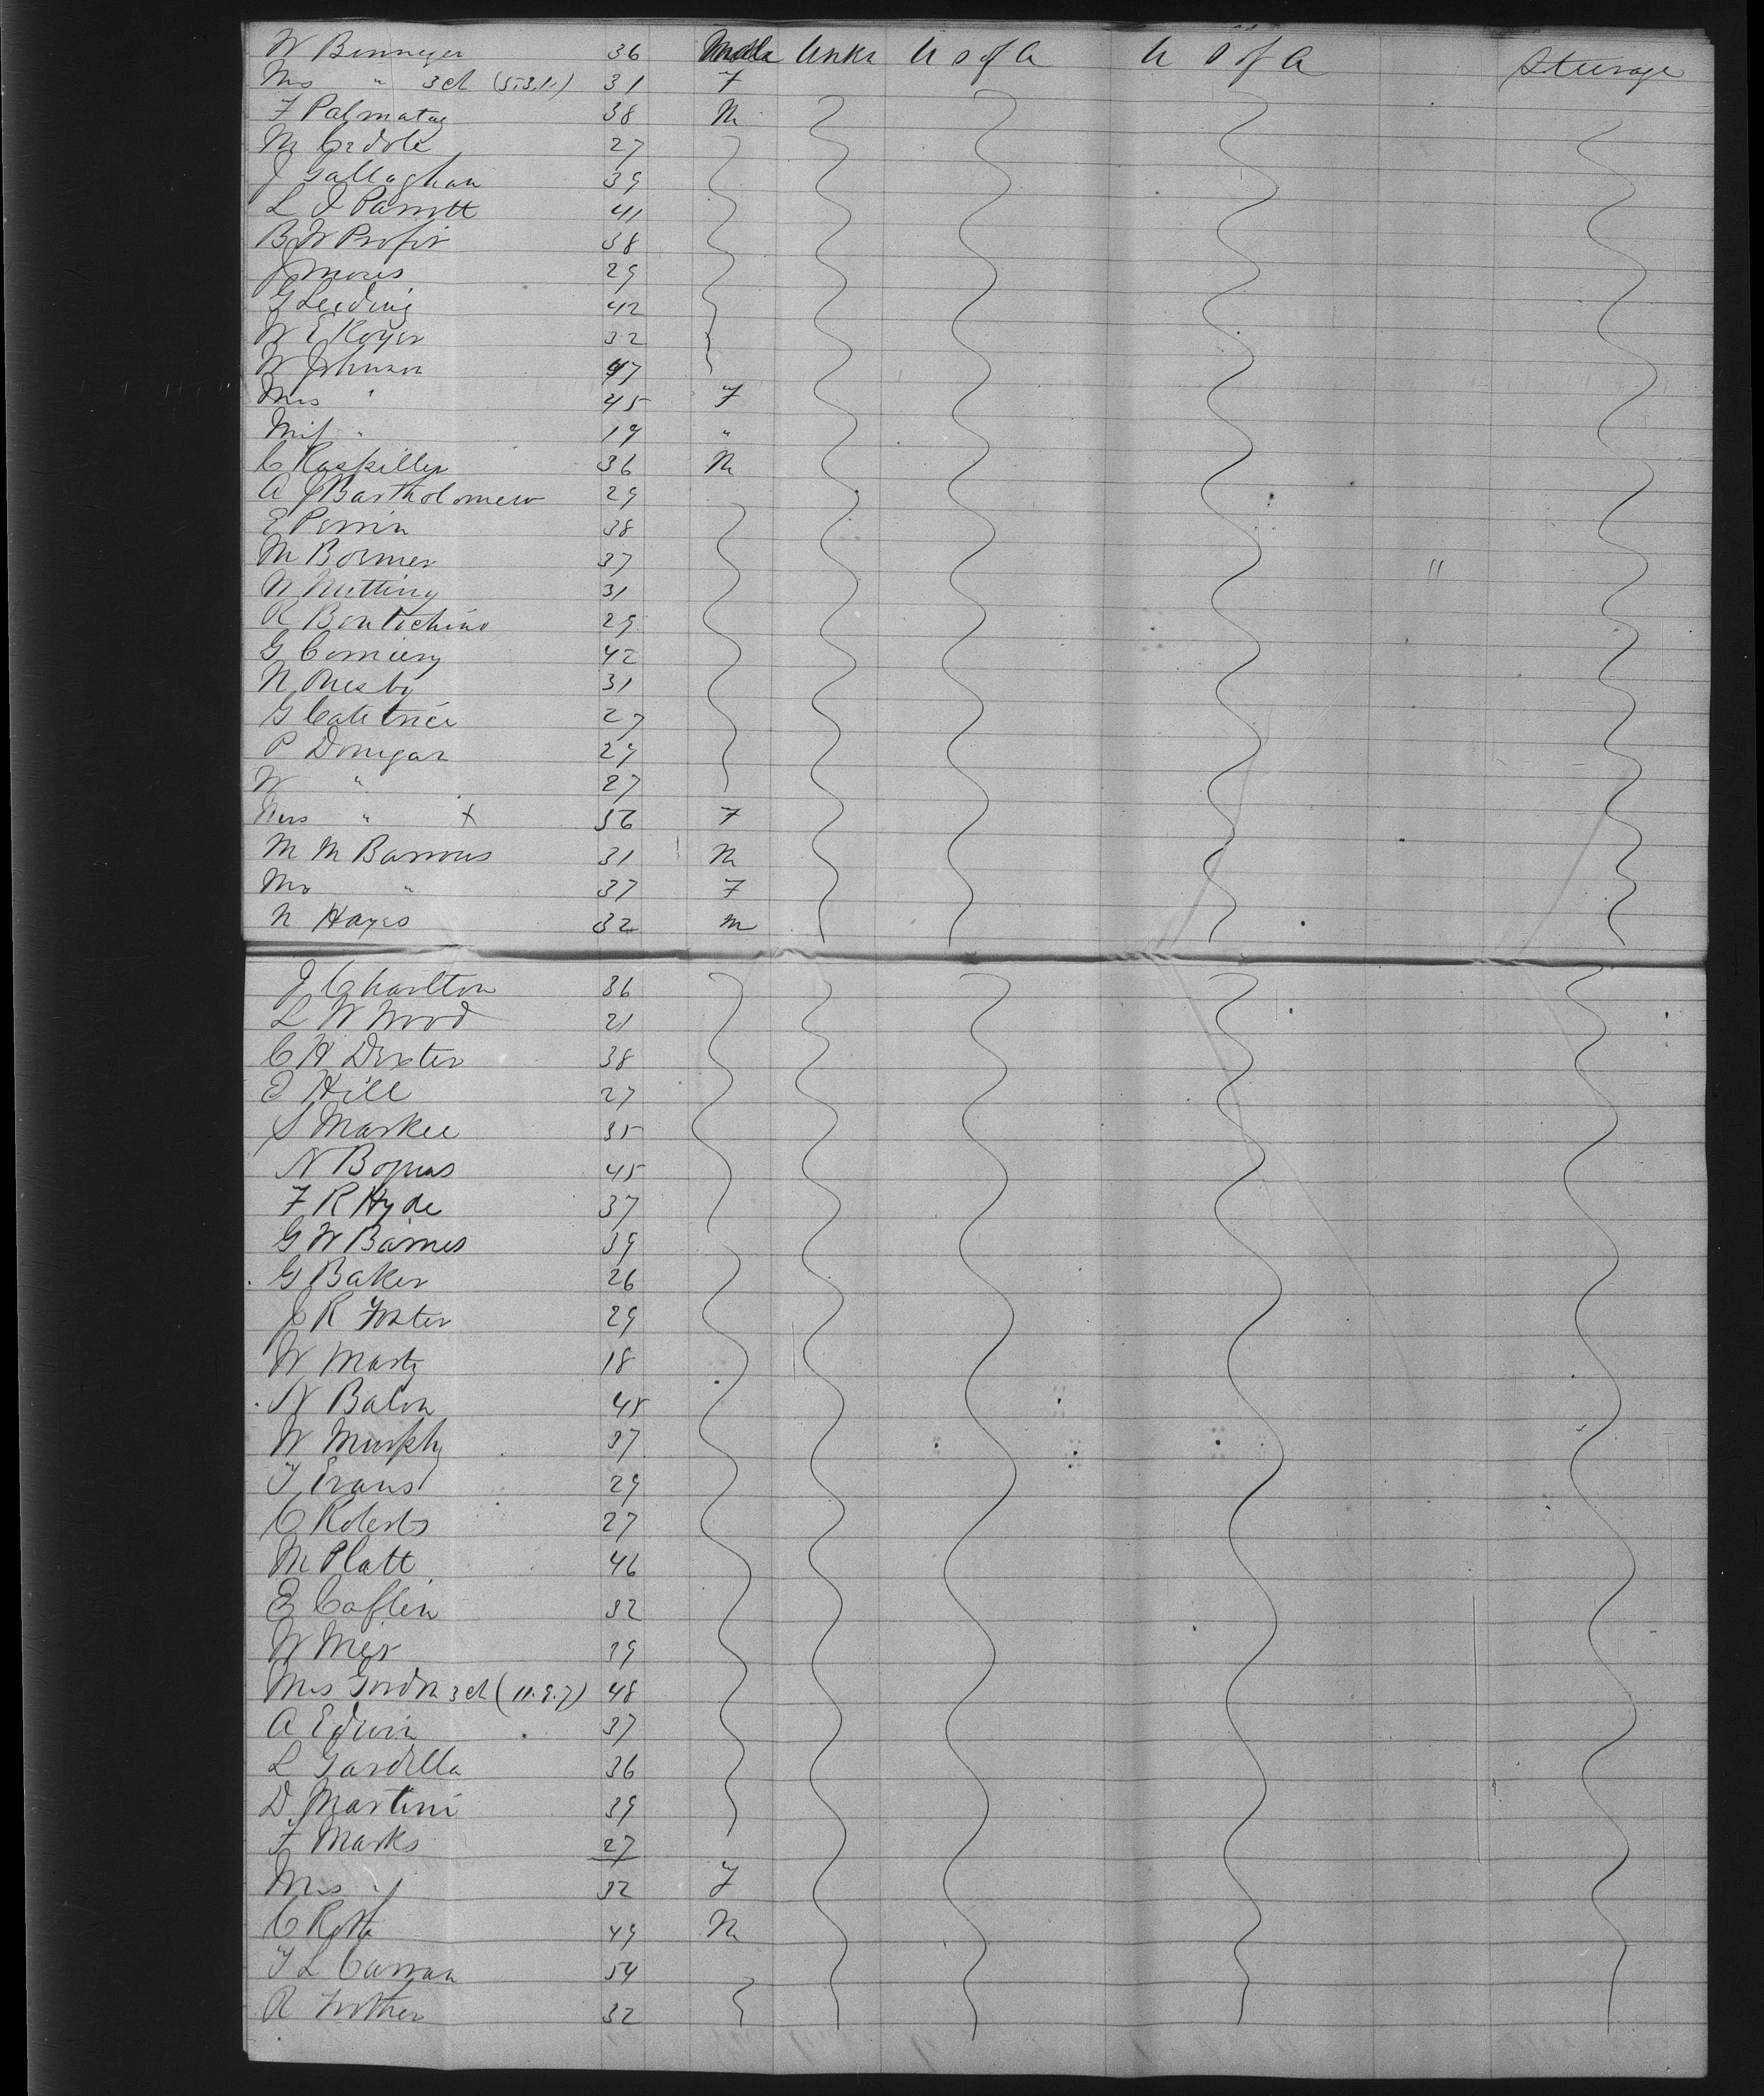 W Benneyer 36 Male Unkn U S of A U S of A Steerage
Mrs " 3 ch (5.3.1.) 31 F
F Palmatag 38 M
M Credole 27
J Gallaghan 39
L J Parrott 41
B W Profir 38
J Moris 29
G Leeding 42
W E Royer 32
W Johnson 47
Mrs " 45 F
Miss " 19 "
C Raspiller 36 M
A J Bartholomew 29
E Perrin 38
M Bormer 37
N Nutting 31
R Bontochino 29
G 42
N Onesby 31
G 27
P Donegan 29
W " 27
Mrs " x 36 F
M M Barrows 31 M
Mrs " 37 F
N Hayes 32 M
J Charlton 36
L W Wood 21
C H Dexter 38
E Hill 27
S Markee 35
N 45
F R Hyde 37
G W Barnes 39
G Baker 26
J R Foster 29
W Marty 18
N Balon 45
W Murphy 37
T Evans 29
C Roberts 27
M Platt 46
E Coflin 32
W Mix 39
Mrs Gordon 3 ch (11.9.7) 48
A Edwin 37
L Gardella 36
D Martini 39
F Marks 27
Mrs " 32 F
C Roth 49 M
T L Curran 54
R 32